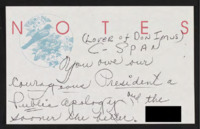 NOTES
(Loser of Don Imus)
C-SPAN
You owe our
courageous President a
Public apology and the
sooner the better.